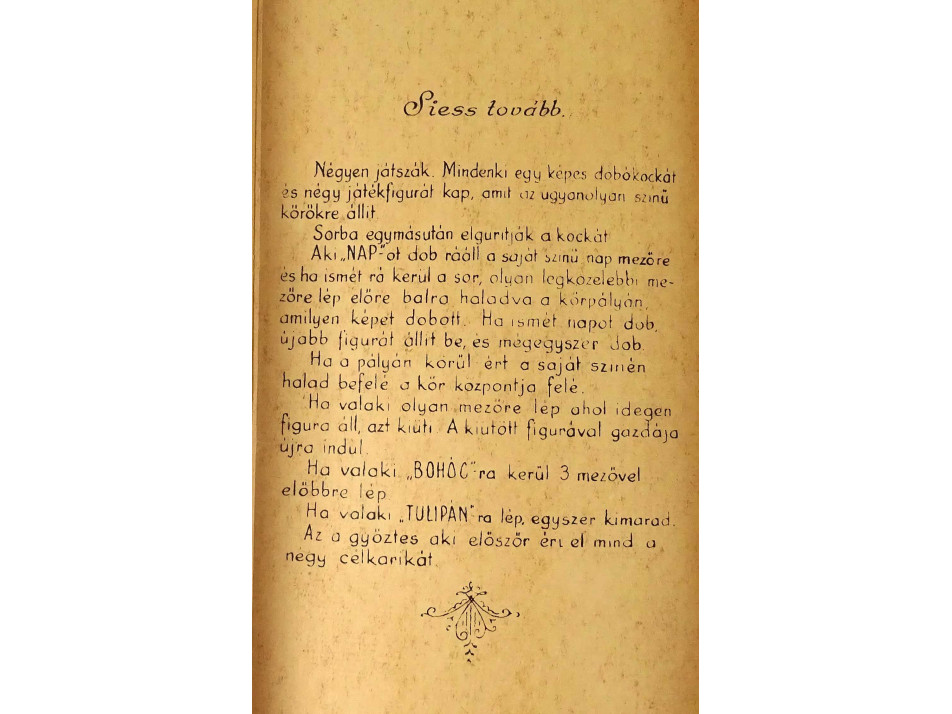 Siess tovább.
Négyen játszák. Mindenki egy képes dobókockát
és négy játékfigurát kap, amit az ugyanolyan szinű
körökre állit
Sorba egymásután elguritják a kockát
Aki „NAP"-ot dob rááll a saját szinű nap mezőre
és ha ismét rá kerül a sor, olyan legközelebbi me-
zőre lép előre balra haladva a körpályán,
amilyen képet dobott. Ha ismét napot dob,
újabb figurát állit be, és mégegyszer dob.
Ha a pályán körül ért a saját szinén
halad befelé a kör központja felé.
Ha valaki olyan mezőre lép ahol idegen
figura áll, azt kiüti. A kiütött figurával gazdája
újra indul.
Ha valaki „BOHÓC"-ra kerül 3 mezővel
előbbre lép
Ha valaki „TULIPÁN"-ra lép, egyszer kimarad.
Az a győztes aki először éri el mind a
négy célkarikát.